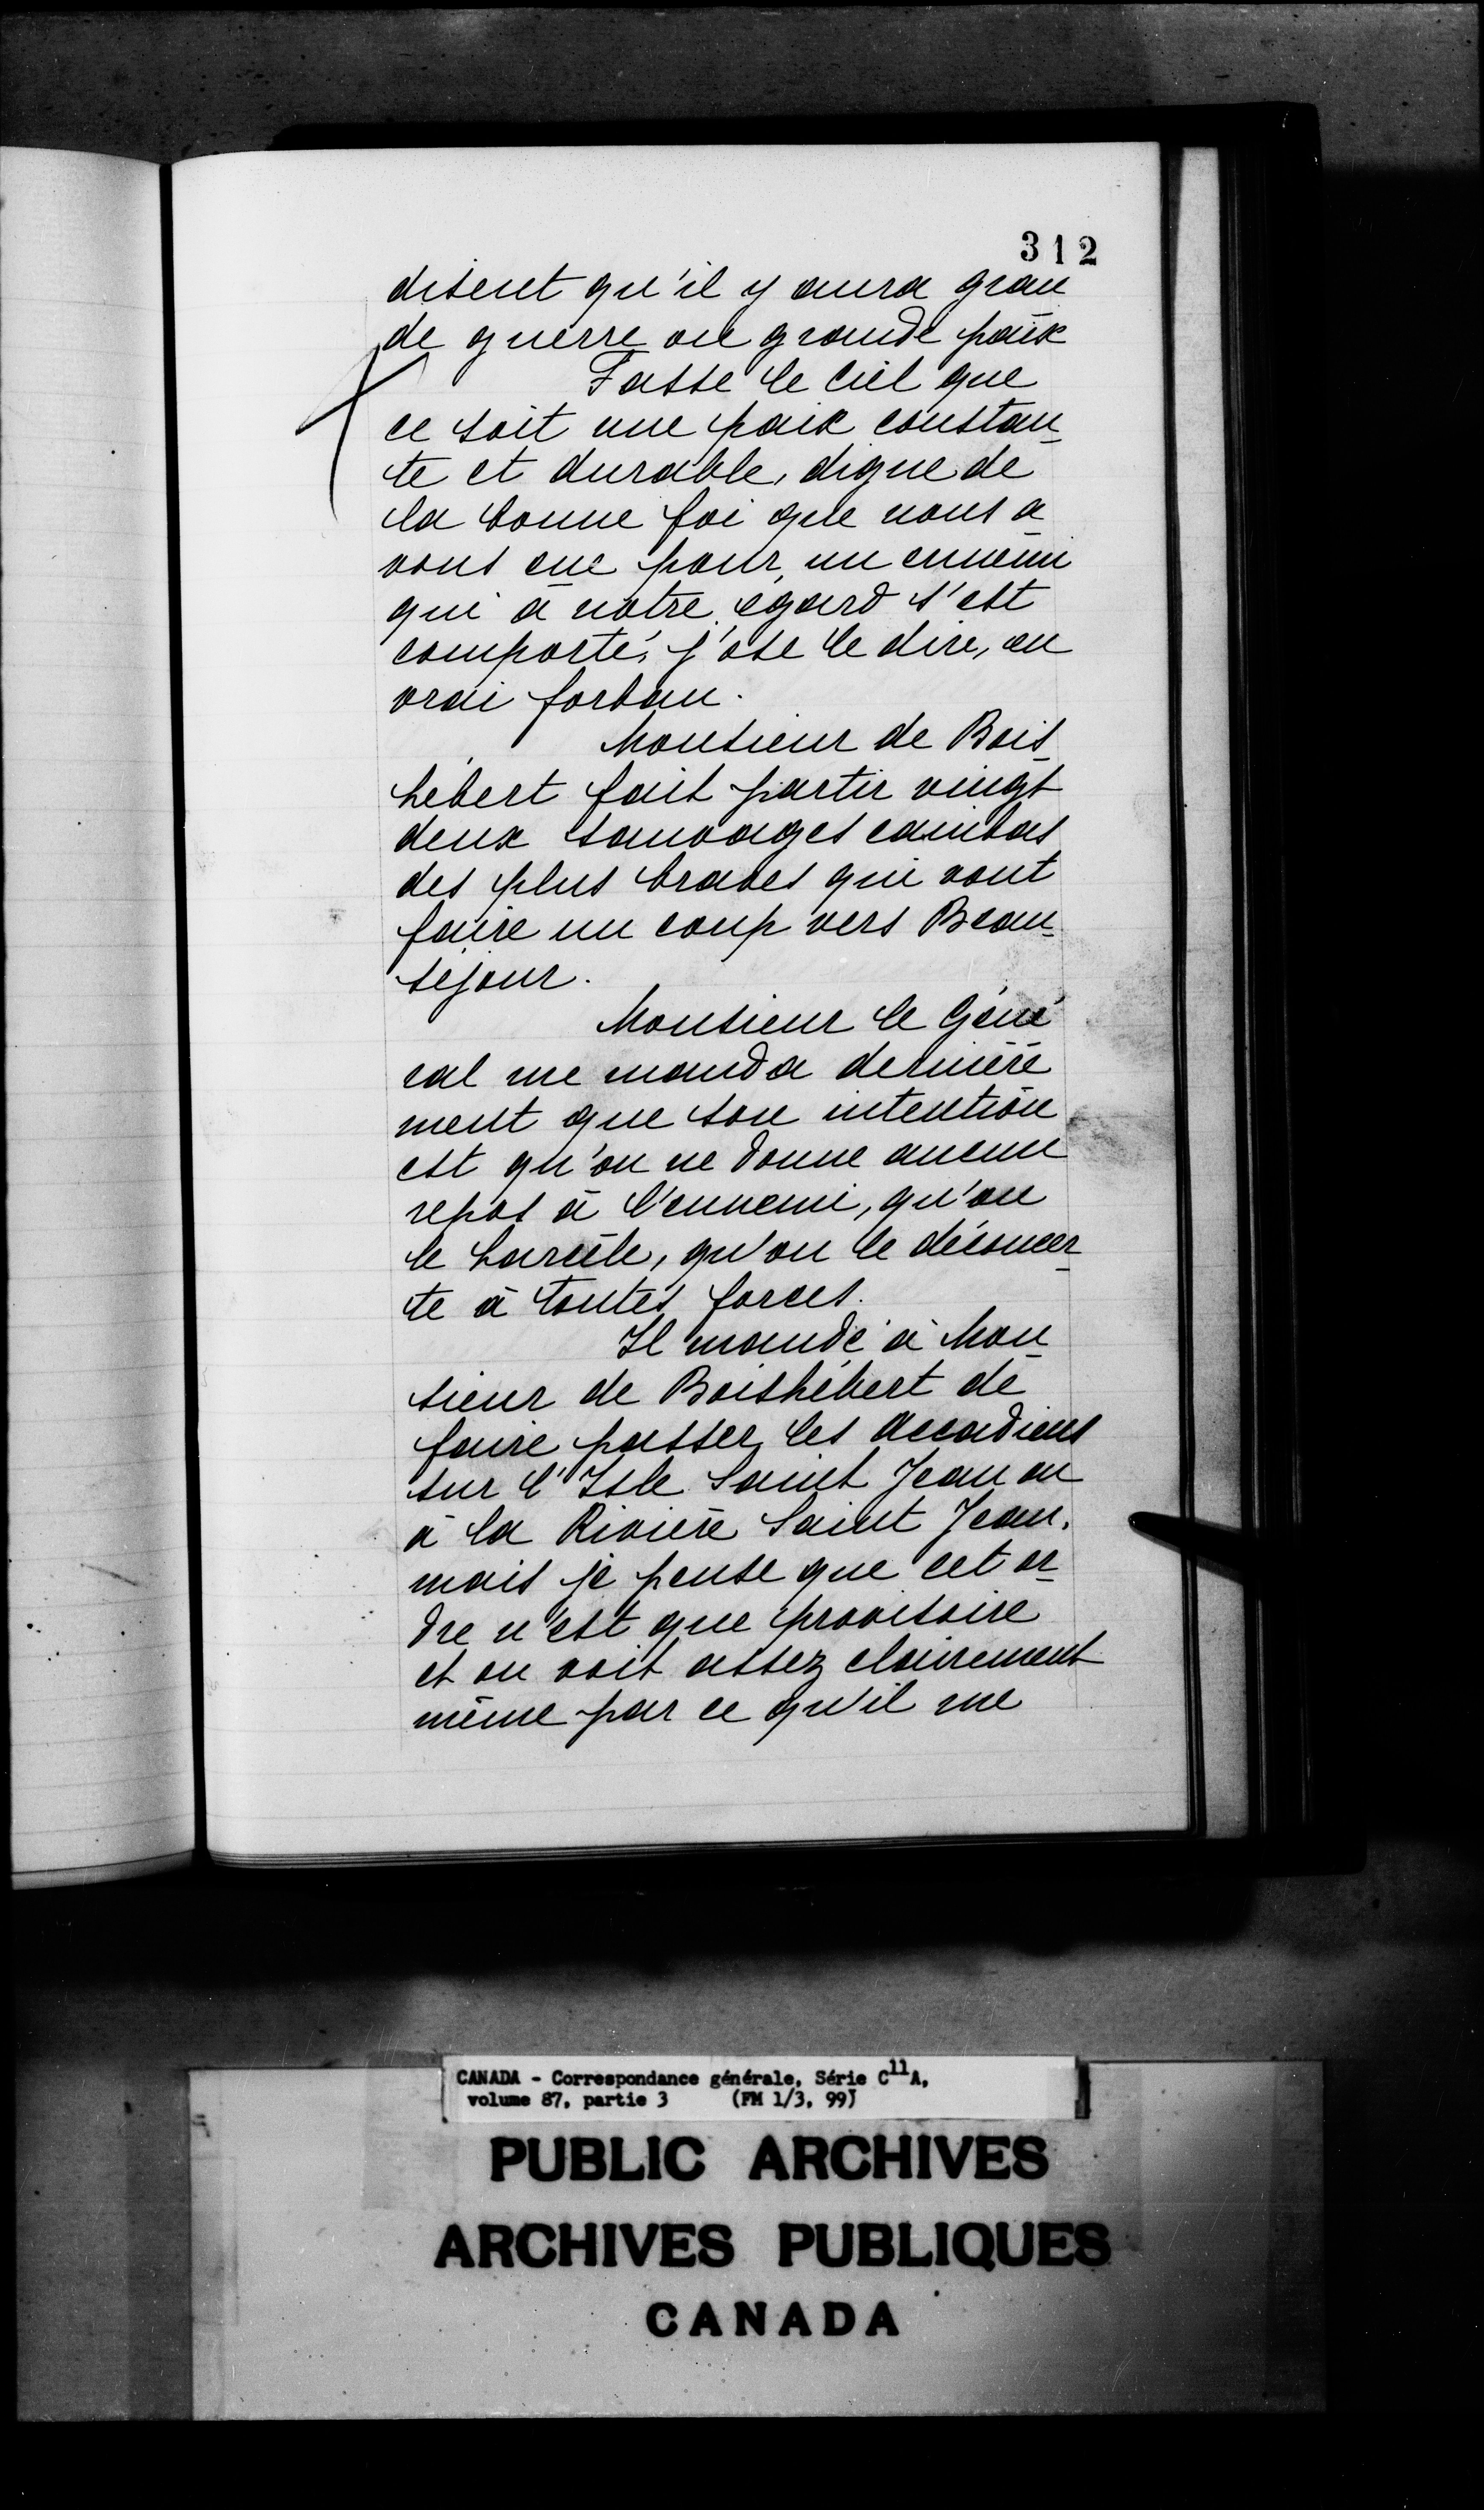 312
disent qu'il y aura gran
de guerre ou grande paix
Fasse le Ciel que
ce soit une paix constan_
te et durable, digne de
la bonne foi que nous a_
vons eue pour un ennemi
qui à notre égard s'est
comporté, j'ose le dire, en
vrai forban.
Monsieur de Bois_
hébert fait partir vingt
deux sauvages canibas
des plus braves qui vont
faire un coup vers Beau_
séjour.
Monsieur le Géné
ral me manda dernière
ment que son intention
est qu'on ne donne aucun
repos à l'ennemi, qu'on
le harcèle, qu'on le déconcer_
te à toutes forces.
Il mande à Mon_
sieur de Boishébert de
faire passer les accadiens
sur l'Isle Saint Jean ou
à la Rivière Saint Jean,
mais je pense que cet or_
dre n'est que provisoire
et on voit assez clairement
même par ce qu'il me
CANADA - Correspondance générale, Série C11A,
volume 87, partie 3 (FM 1/3, 99)
PUBLIC ARCHIVES
ARCHIVES PUBLIQUES
CANADA